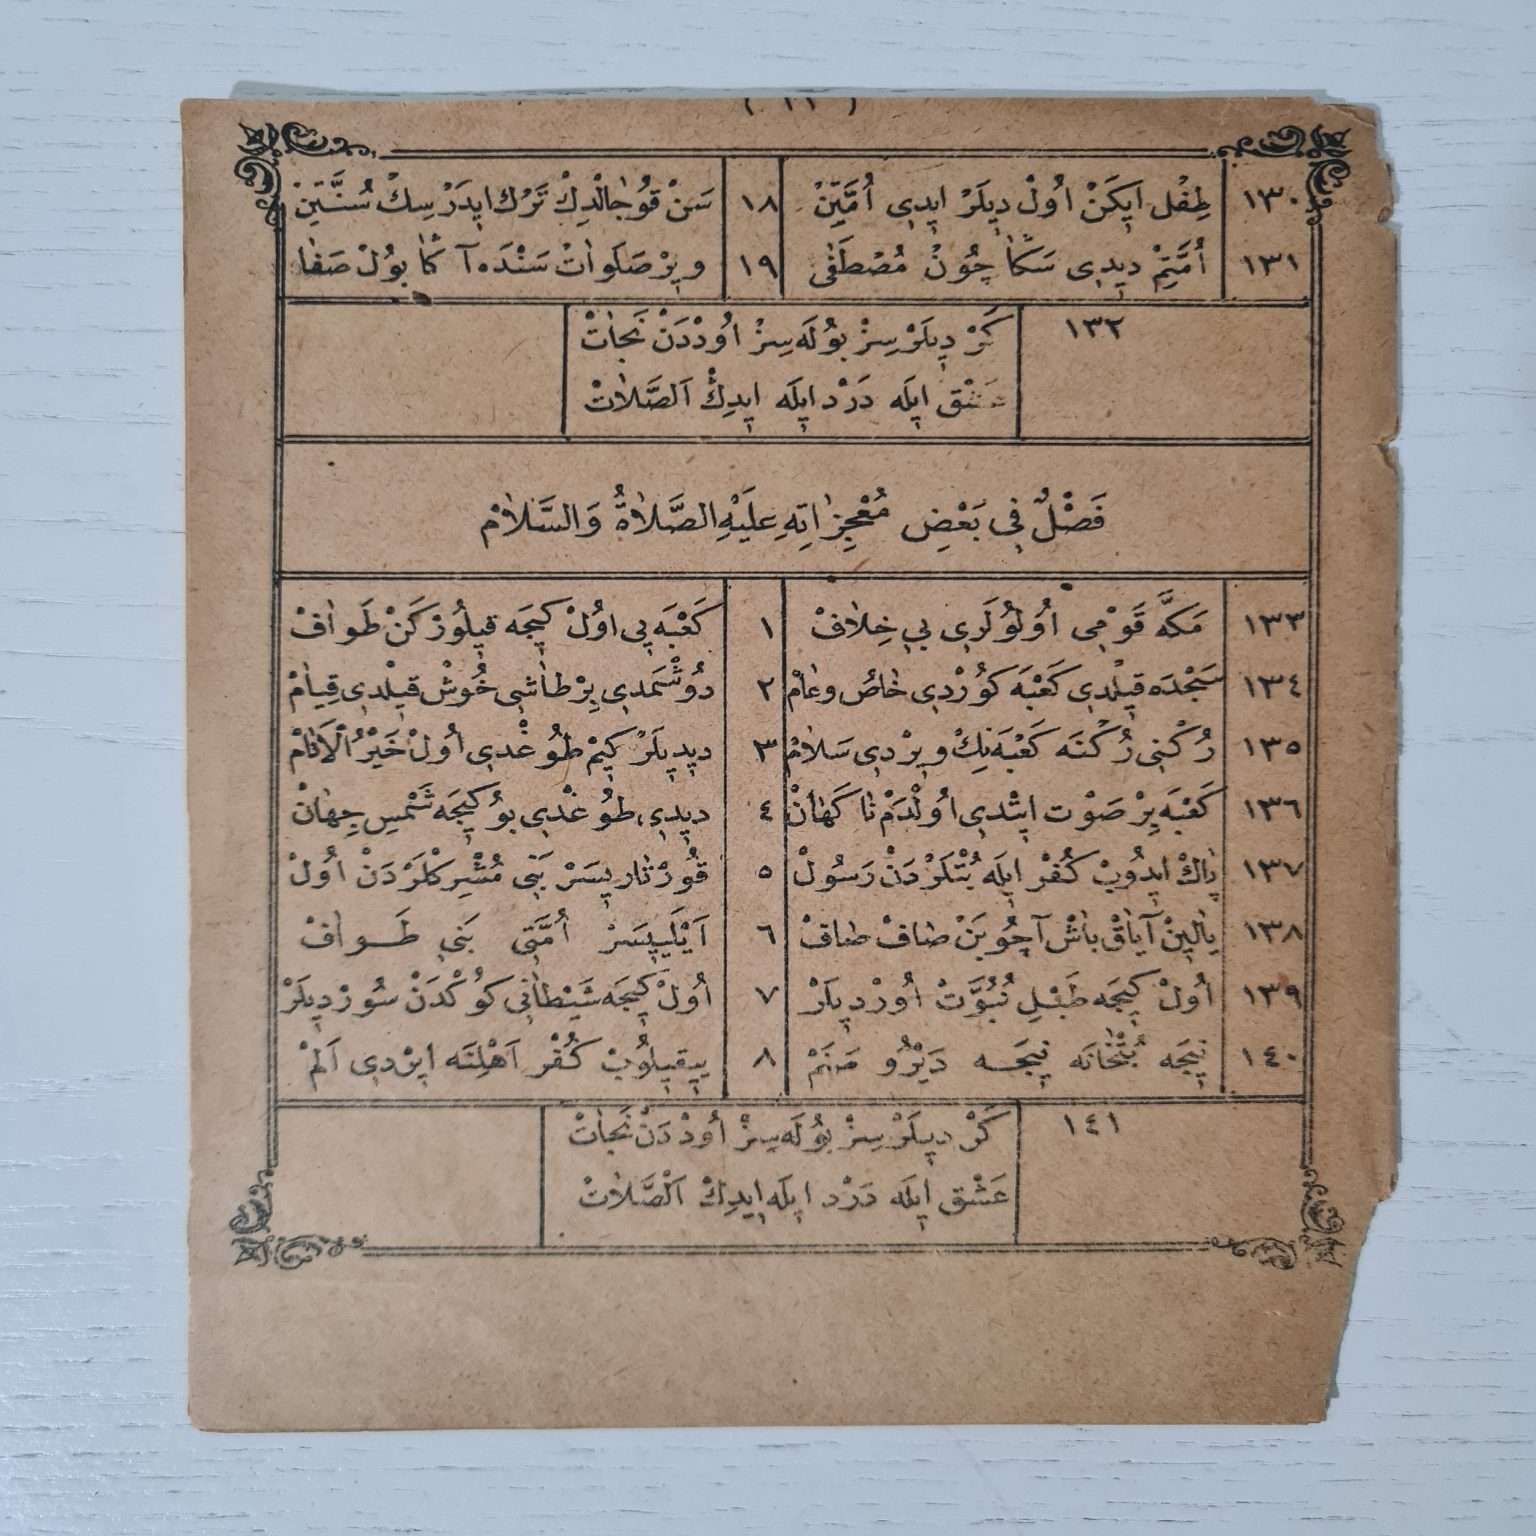 ( ١١ )
١٣٠ طِفْل ايكَنْ اُولْ ديلَرْ ايدى اُمَّتِنْ ١٨ سَنْ قوُجالْدِكْ تَرْك ايدَرْسِكْ سُنَّتِنْ
١٣١ اُمَّتِمْ ديدى سَكَا چُونْ مُصْطَفٰى ١٩ ويرْ صَلَوٰاتْ سَنْدَه آكا بُولْ صَفٰا
١٣٢ كَرْ ديلَرْسِزْ بُولَه سِزْ اُودْدَنْ نَجٰاتْ
عَشْق ايلَه دَرْد ايلَه ايدِكْ اَلصَّلاٰتْ
فَصْلٌ فِى بَعْضِ مُعْجِزٰاتِهِ عَلَيْهِ الصَّلاٰةُ وَالسَّلاٰمْ
١٣٣ مَكَّه قَوْمِى اُولُولَرِى بِى خِلاٰفْ ١ كَعْبَه يِى اُولْ كيجَه قيلُورْكَنْ طَوٰافْ
١٣٤ سَجْدَه قيلْدِى كَعْبَه كوُرْدِى خٰاصُ وعٰامْ ٢ دُوشْمَدِى بِرْ طاٰشِى خُوشْ قيلْدِى قِيٰامْ
١٣٥ رُكْنِى رُكْنَه كَعْبَه نِكْ ويرْدِى سَلاٰمْ ٣ ديديلَرْ كيمْ طُوغْدِى اُولْ خَيْرُ الْاَنٰامْ
١٣٦ كَعْبَه بِرْ صَوْتِ ايتْدِى اُولْدَمْ نٰا كَهٰانْ ٤ ديدِى طُوغْدِى بوُ كيجَه شَمْسِ جِهٰانْ
١٣٧ پٰاكْ ايدُوبْ كُفْر ايلَه بُتْلَرْدَنْ رَسُولْ ٥ قُورْتٰاريسَرْ بَنِى مُشْرِكْلَرْدَنْ اُولْ
١٣٨ يٰالينْ آيٰاقْ بٰاشْ آچُوبَنْ صٰافْ صٰافْ ٦ اَيْلَييسَرْ اُمَّتِى بَنِى طَوٰافْ
١٣٩ اُولْ كيجَه طَبْلِ نُبُوَّتْ اُورْديلَرْ ٧ اُولْ كيجَه شَيْطٰانِى كوُكْدَنْ سُورْديلَرْ
١٤٠ نيجَه بُتْخٰانَه نيجَه دَيْرُو صَنَمْ ٨ ييقيلُوبْ كُفْر اَهْلِنَه ايرْدِى اَلَمْ
١٤١ كَرْ ديلَرْسِزْ بُولَه سِزْ اُودْدَنْ نَجٰاتْ
عَشْق ايلَه دَرْد ايلَه ايدِكْ اَلْصَّلاٰتْ